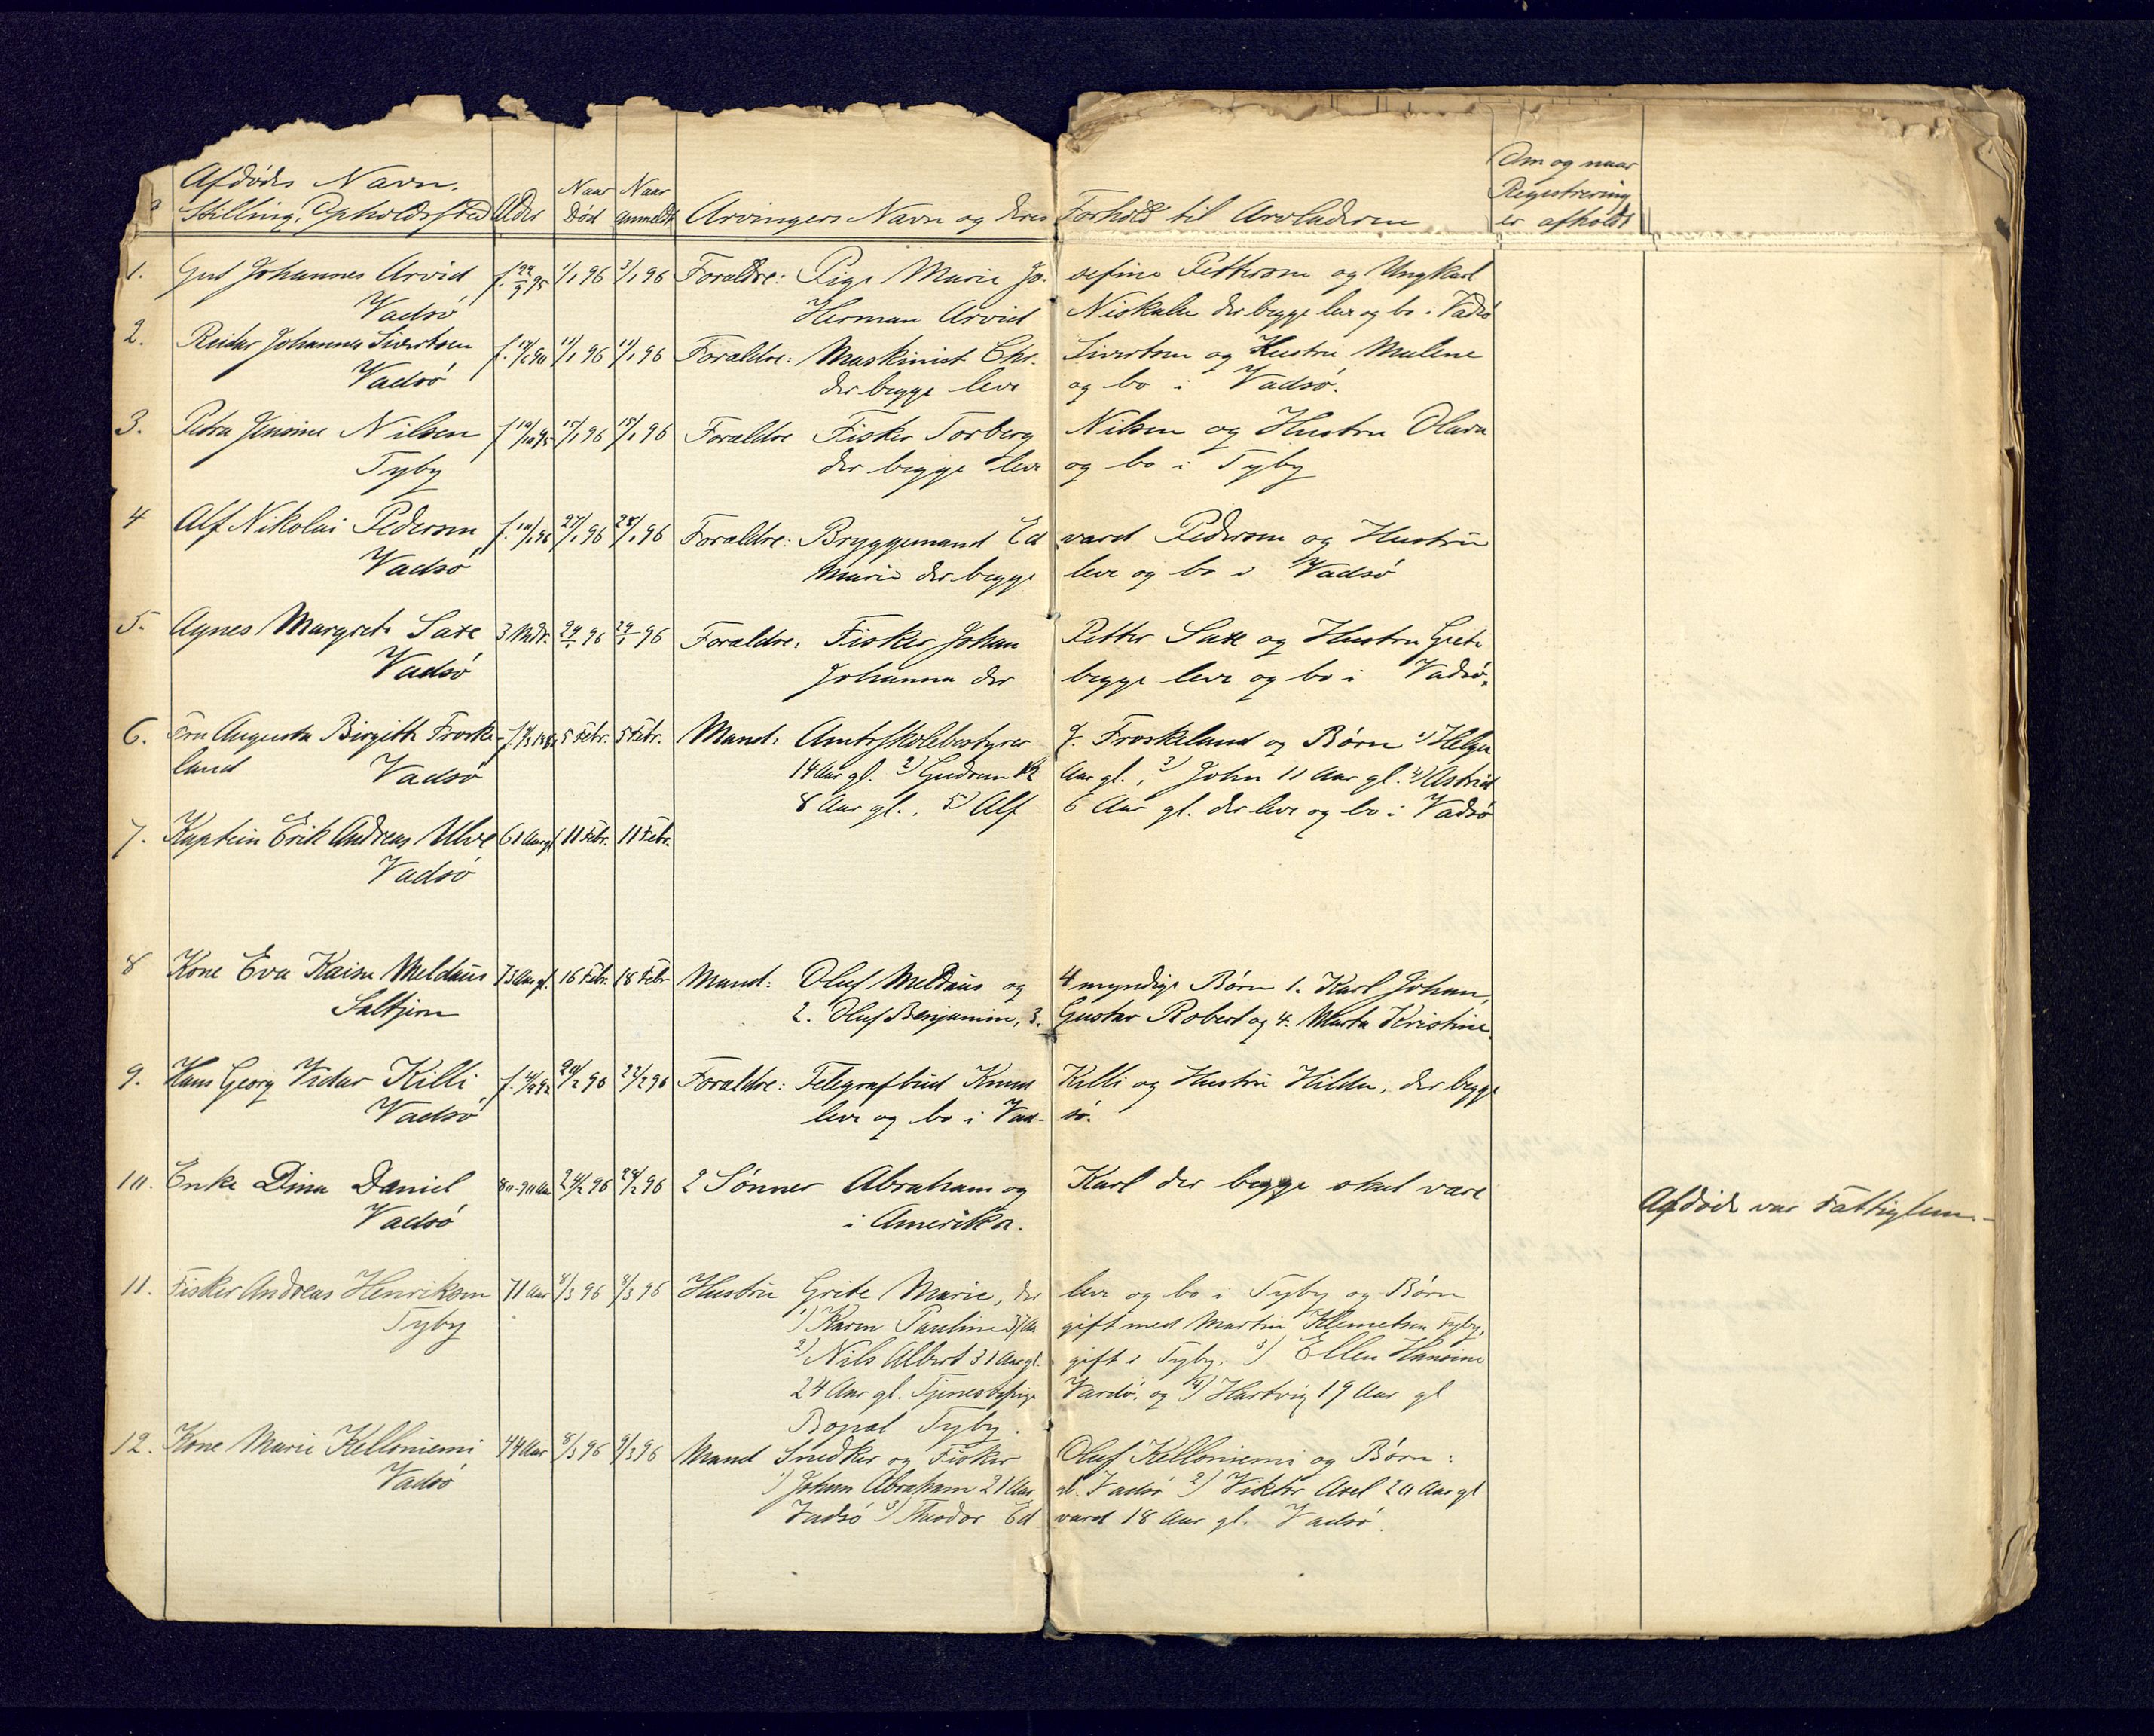 Afdødes Navn.
Stilling, Opholdssted
Alder
Naar
Død
Naar
anmeldt
Arvingers Navn og deres Forhold til Arveladeren
Om og naar
Registrering
er afholdt
1. Gut Johannes Arvid f. 22/9 95 1/1 96 3/1 96 Forældre: Pige Marie Jo- sefine Pettersen og Ungkarl
Vadsø Herman Arvid Niskala der begge leve og bo i Vadsø
2. Reidar Johannes Sivertsen 11/1 96 11/1 96 Forældre: Maskinist Chr. Sivertsen og Hustru Malene
Vadsø der begge leve og bo i Vadsø.
3. Petra Jensine Nilsen 15/1 96 15/1 96 Forældre Fisker Torberg Nilsen og Hustru Olava
Tyby der begge leve og bo i Tyby
4 Alf Nikolai Pedersen 27/1 96 28/1 96 Forældre: Bryggemand Ed vard Pedersen og Hustru
Vadsø Marie der begge leve og bo i Vadsø
5. Agnes Margrete Saxe 3 Mdr. 29/1 96 29/1 96 Forældre: Fisker Johan Petter Saxe og Hustru Grete
Vadsø Johanna der begge leve og bo i Vadsø.
6. Fru Augusta Birgitte Froske- 5 Febr. 5 Febr. Mand: Amtsskolebestyrer J. Froskeland og Børn 1) Helga
land Vadsø 14 Aar gl. 2) Gudrun 12 Aar gl., 3) John 11 Aar gl. 4) Astrid
8 Aar gl., 5) Alf 6 Aar gl. der leve og bo i Vadsø
7. Kaptein Erik Andreas Ulve 61 Aar gl 11 Febr. 11 Febr.
Vadsø
8 Kone Eva Kaisa Meldaus 73 Aar gl. 16 Febr. 18 Febr Mand: Oluf Meldaus og 4 myndige Børn 1. Karl Johan,
Saltjern 2. Oluf Benjamin, 3. Gustav Robert og 4. Marta Kristine.
9. Hans Georg Vidar Killi 20/2 96 22/2 96 Forældre: Telegrafbud Knud Killi og Hustru Hilda, der begge
Vadsø leve og bo i Vad- sø.
10. Enke Dina Daniel 80-90 Aar 24/2 96 24/2 96 2 Sønner Abraham og Karl der begge skal være
Vadsø i Amerika.
Afdøde var Fattiglem.
11. Fisker Andreas Henriksen 71 Aar 8/3 96 8/3 96 Hustru Grete Marie, der leve og bo i Tyby og Børn
Tyby 1) Karen Pauline 37 Aar gift med Martin Klemetsen Tyby,
2) Nils Albert 31 Aar gl. gift i Tyby. 3) Ellen Hansine
24 Aar gl. Tjenestepige Vardø, og 4) Hartvig 19 Aar gl
Bopæl Tyby.
12. Kone Marie Kelloniemi 44 Aar 8/3 96 9/3 96 Mand Snedker og Fisker Oluf Kelloniemi og Børn:
Vadsø 1) Johan Abraham 21 Aar gl. Vadsø 2) Viktor Axel 20 Aar gl
Vadsø 3) Theodor Ed vard 18 Aar gl. Vadsø.